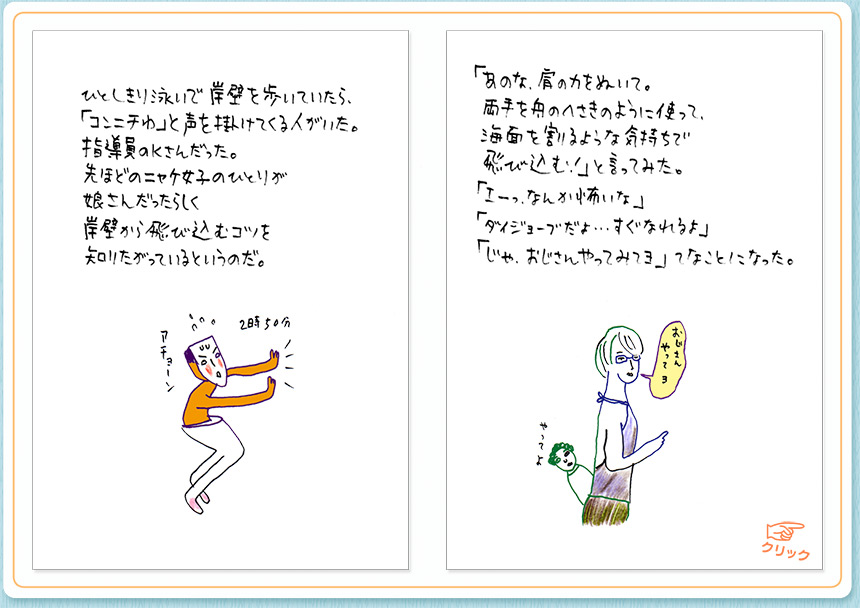 ひとしきり泳いで岸壁を歩いていたら、
「コンニチわ」と声を掛けてくる人がいた。
指導員のKさんだった。
先ほどのニャケ女子のひとりが
娘さんだったらしく
岸壁から飛び込むコツを
知りたがっているというのだ。
2時50分
アチョーン
「あのな、肩の力をぬいて。
両手を舟のへさきのように使って、
海面を割るような気持ちで
飛び込む!」と言ってみた。
「エーっ、なんか怖いな」
「ダイジョーブだよ…すぐなれるよ」
「じゃ、おじさんやってみてヨ」てなことになった。
おじさん
やってヨ
やってよ
クリック